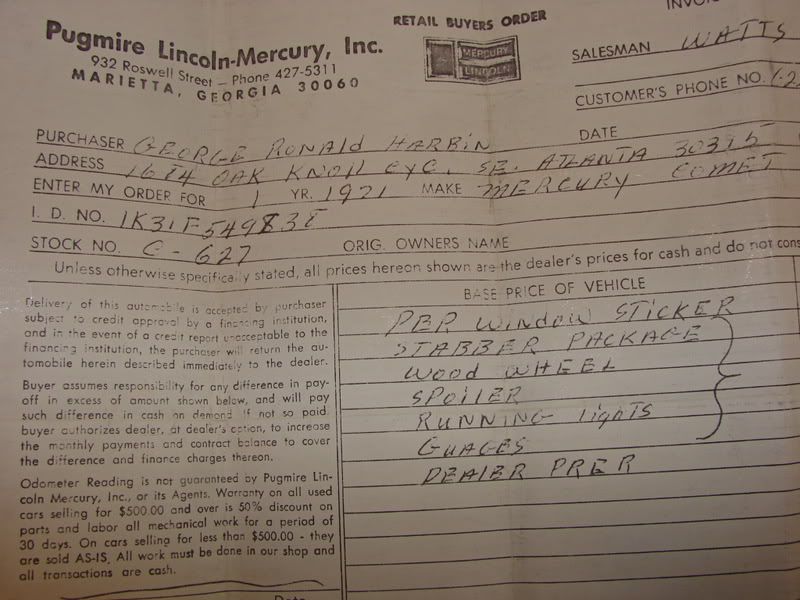 INVOI
RETAIL BUYERS ORDER
Pugmire Lincoln-Mercury, Inc.
932 Roswell Street – Phone 427-5311
MARIETTA, GEORGIA 30060
MERCURY
LINCOLN
SALESMAN WATTS
CUSTOMER'S PHONE NO.
PURCHASER GEORGE RONALD HARBIN
DATE
ADDRESS OAK KNOLL SE. ATLANTA 30315
ENTER MY ORDER FOR 1 YR. 1971 MAKE MERCURY COMET
I. D. NO.
STOCK NO. C-627 ORIG. OWNERS NAME
Unless otherwise specifically stated, all prices hereon shown are the dealer's prices for cash and do not cons
BASE PRICE OF VEHICLE
PER WINDOW STICKER
STABBER PACKAGE
WOOD WHEEL
SPOILER
RUNNING lights
GUAGES
DEALER PREP
Delivery of this automobile is accepted by purchaser
subject to credit approval by a financing institution,
and in the event of a credit report unacceptable to the
financing institution, the purchaser will return the au-
tomobile herein described immediately to the dealer.
Buyer assumes responsibility for any difference in pay-
off in excess of amount shown below, and will pay
such difference in cash on demand If not so paid
buyer authorizes dealer, at dealer's option, to increase
the monthly payments and contract balance to cover
the difference and finance charges thereon.
Odometer Reading is not guaranteed by Pugmire Lin-
coln Mercury, Inc., or its Agents. Warranty on all used
cars selling for $500.00 and over is 50% discount on
parts and labor all mechanical work for a period of
30 days. On cars selling for less than $500.00 - they
are sold AS-IS. All work must be done in our shop and
all transactions are cash.
Date